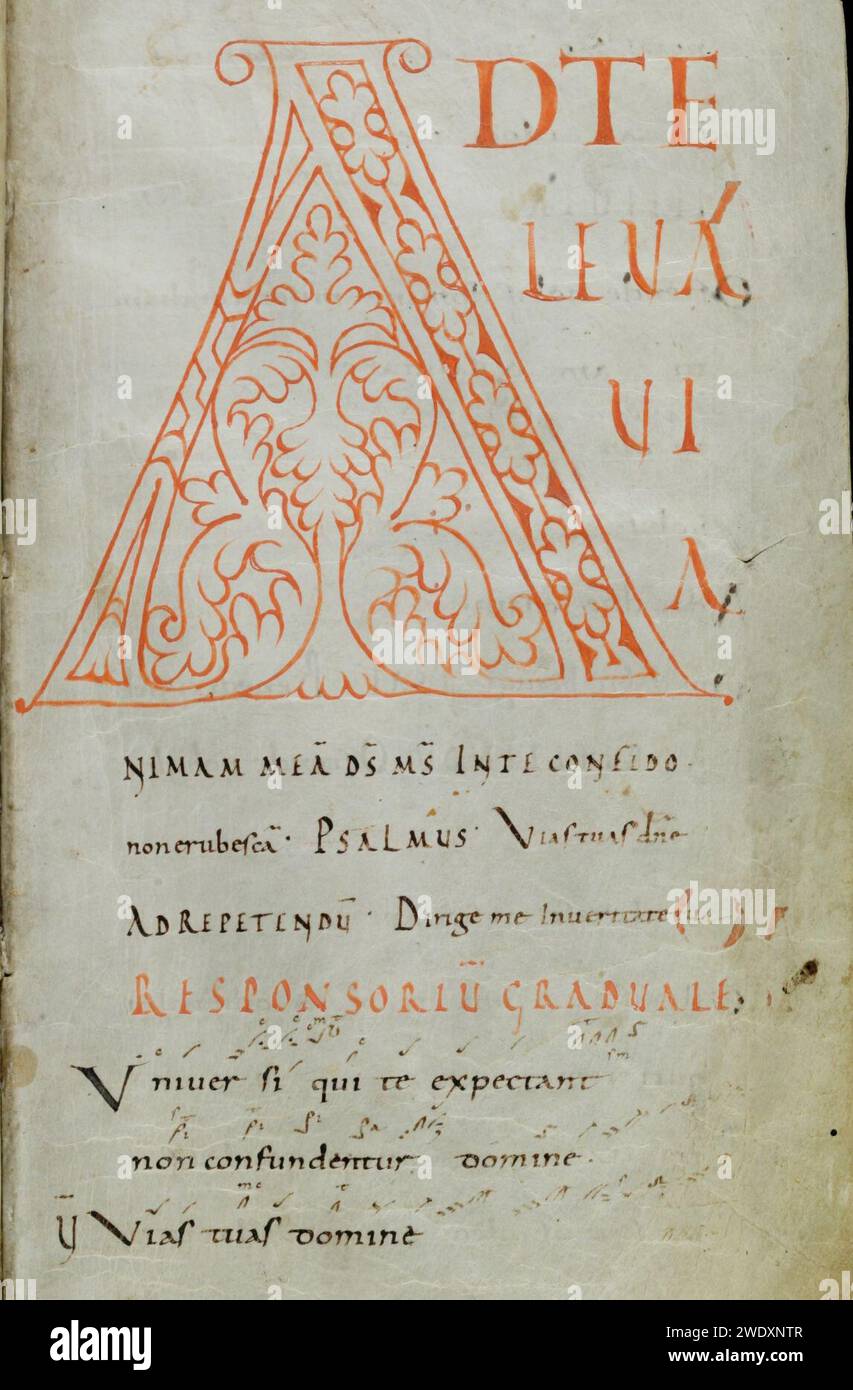 AD TE
LEUÁ
UI
A
NIMAM MEĀ DS̄ MS̄ INTE CONFIDO.
non erubescā. PSALMUS. Vias tuas dn̄e
AD REPETENDŪ. Dirige me In ueritate
RESPONSORIŪ GRADUALE
Vniuersi qui te expectant
non confundentur domine.
Ꝟ Vias tuas domine
alamy
Image ID: 2WDXNTR
www.alamy.com